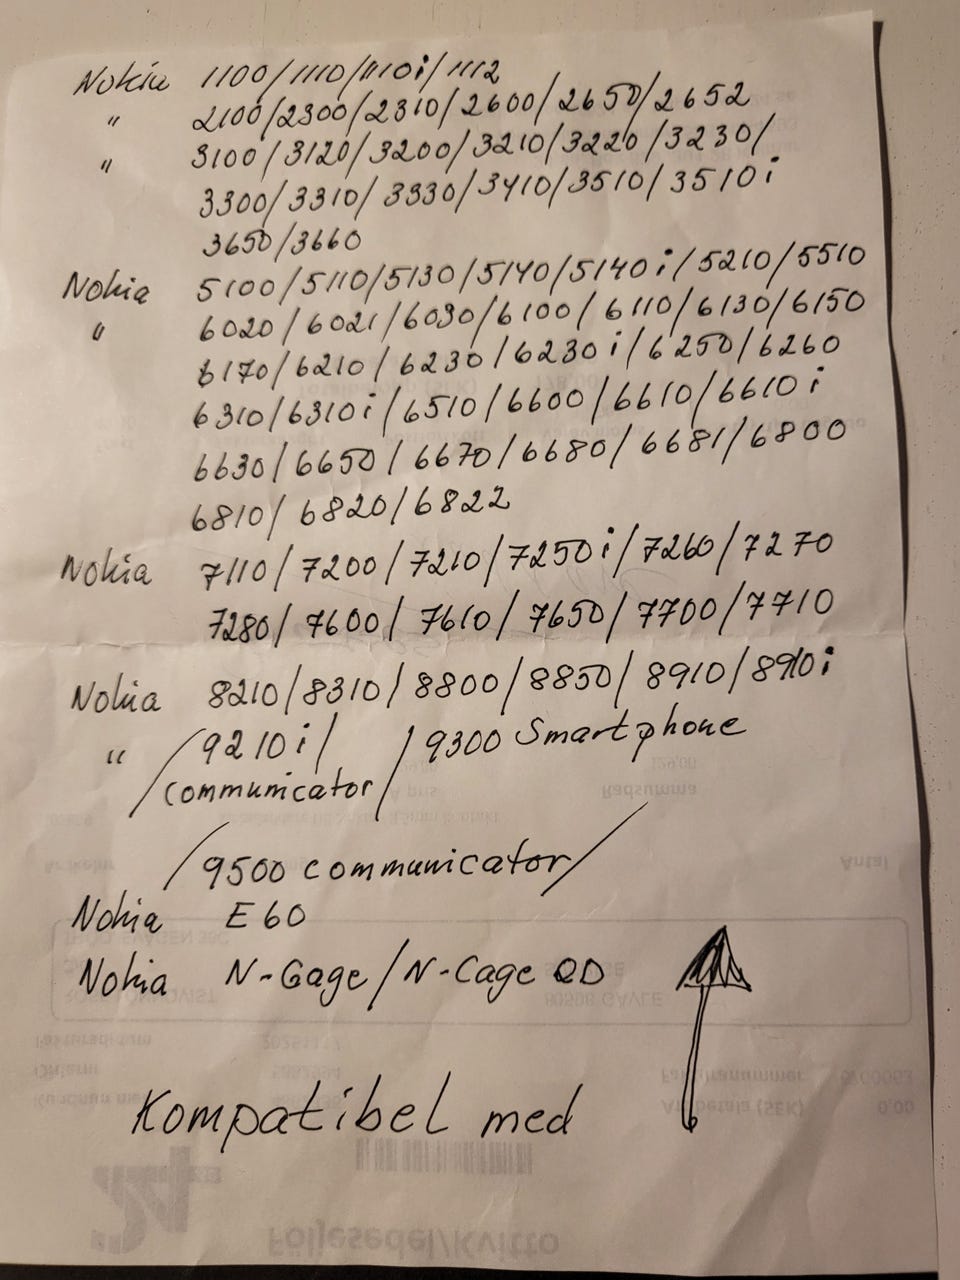 Nokia 1100/1110/1110i/1112
" 2100/2300/2310/2600/2650/2652
" 3100/3120/3200/3210/3220/3230/
3300/3310/3330/3410/3510/3510i
3650/3660
Nokia 5100/5110/5130/5140/5140i/5210/5510
" 6020/6021/6030/6100/6110/6130/6150
6170/6210/6230/6230i/6250/6260
6310/6310i/6510/6600/6610/6610i
6630/6650/6670/6680/6681/6800
6810/6820/6822
Nokia 7110/7200/7210/7250i/7260/7270
7280/7600/7610/7650/7700/7710
Nokia 8210/8310/8800/8850/8910/8910i
" /9210i/ /9300 Smartphone
communicator
/9500 communicator/
Nokia E60
Nokia N-Gage/N-Cage QD
Kompatibel med
Följesedel/Kvitto